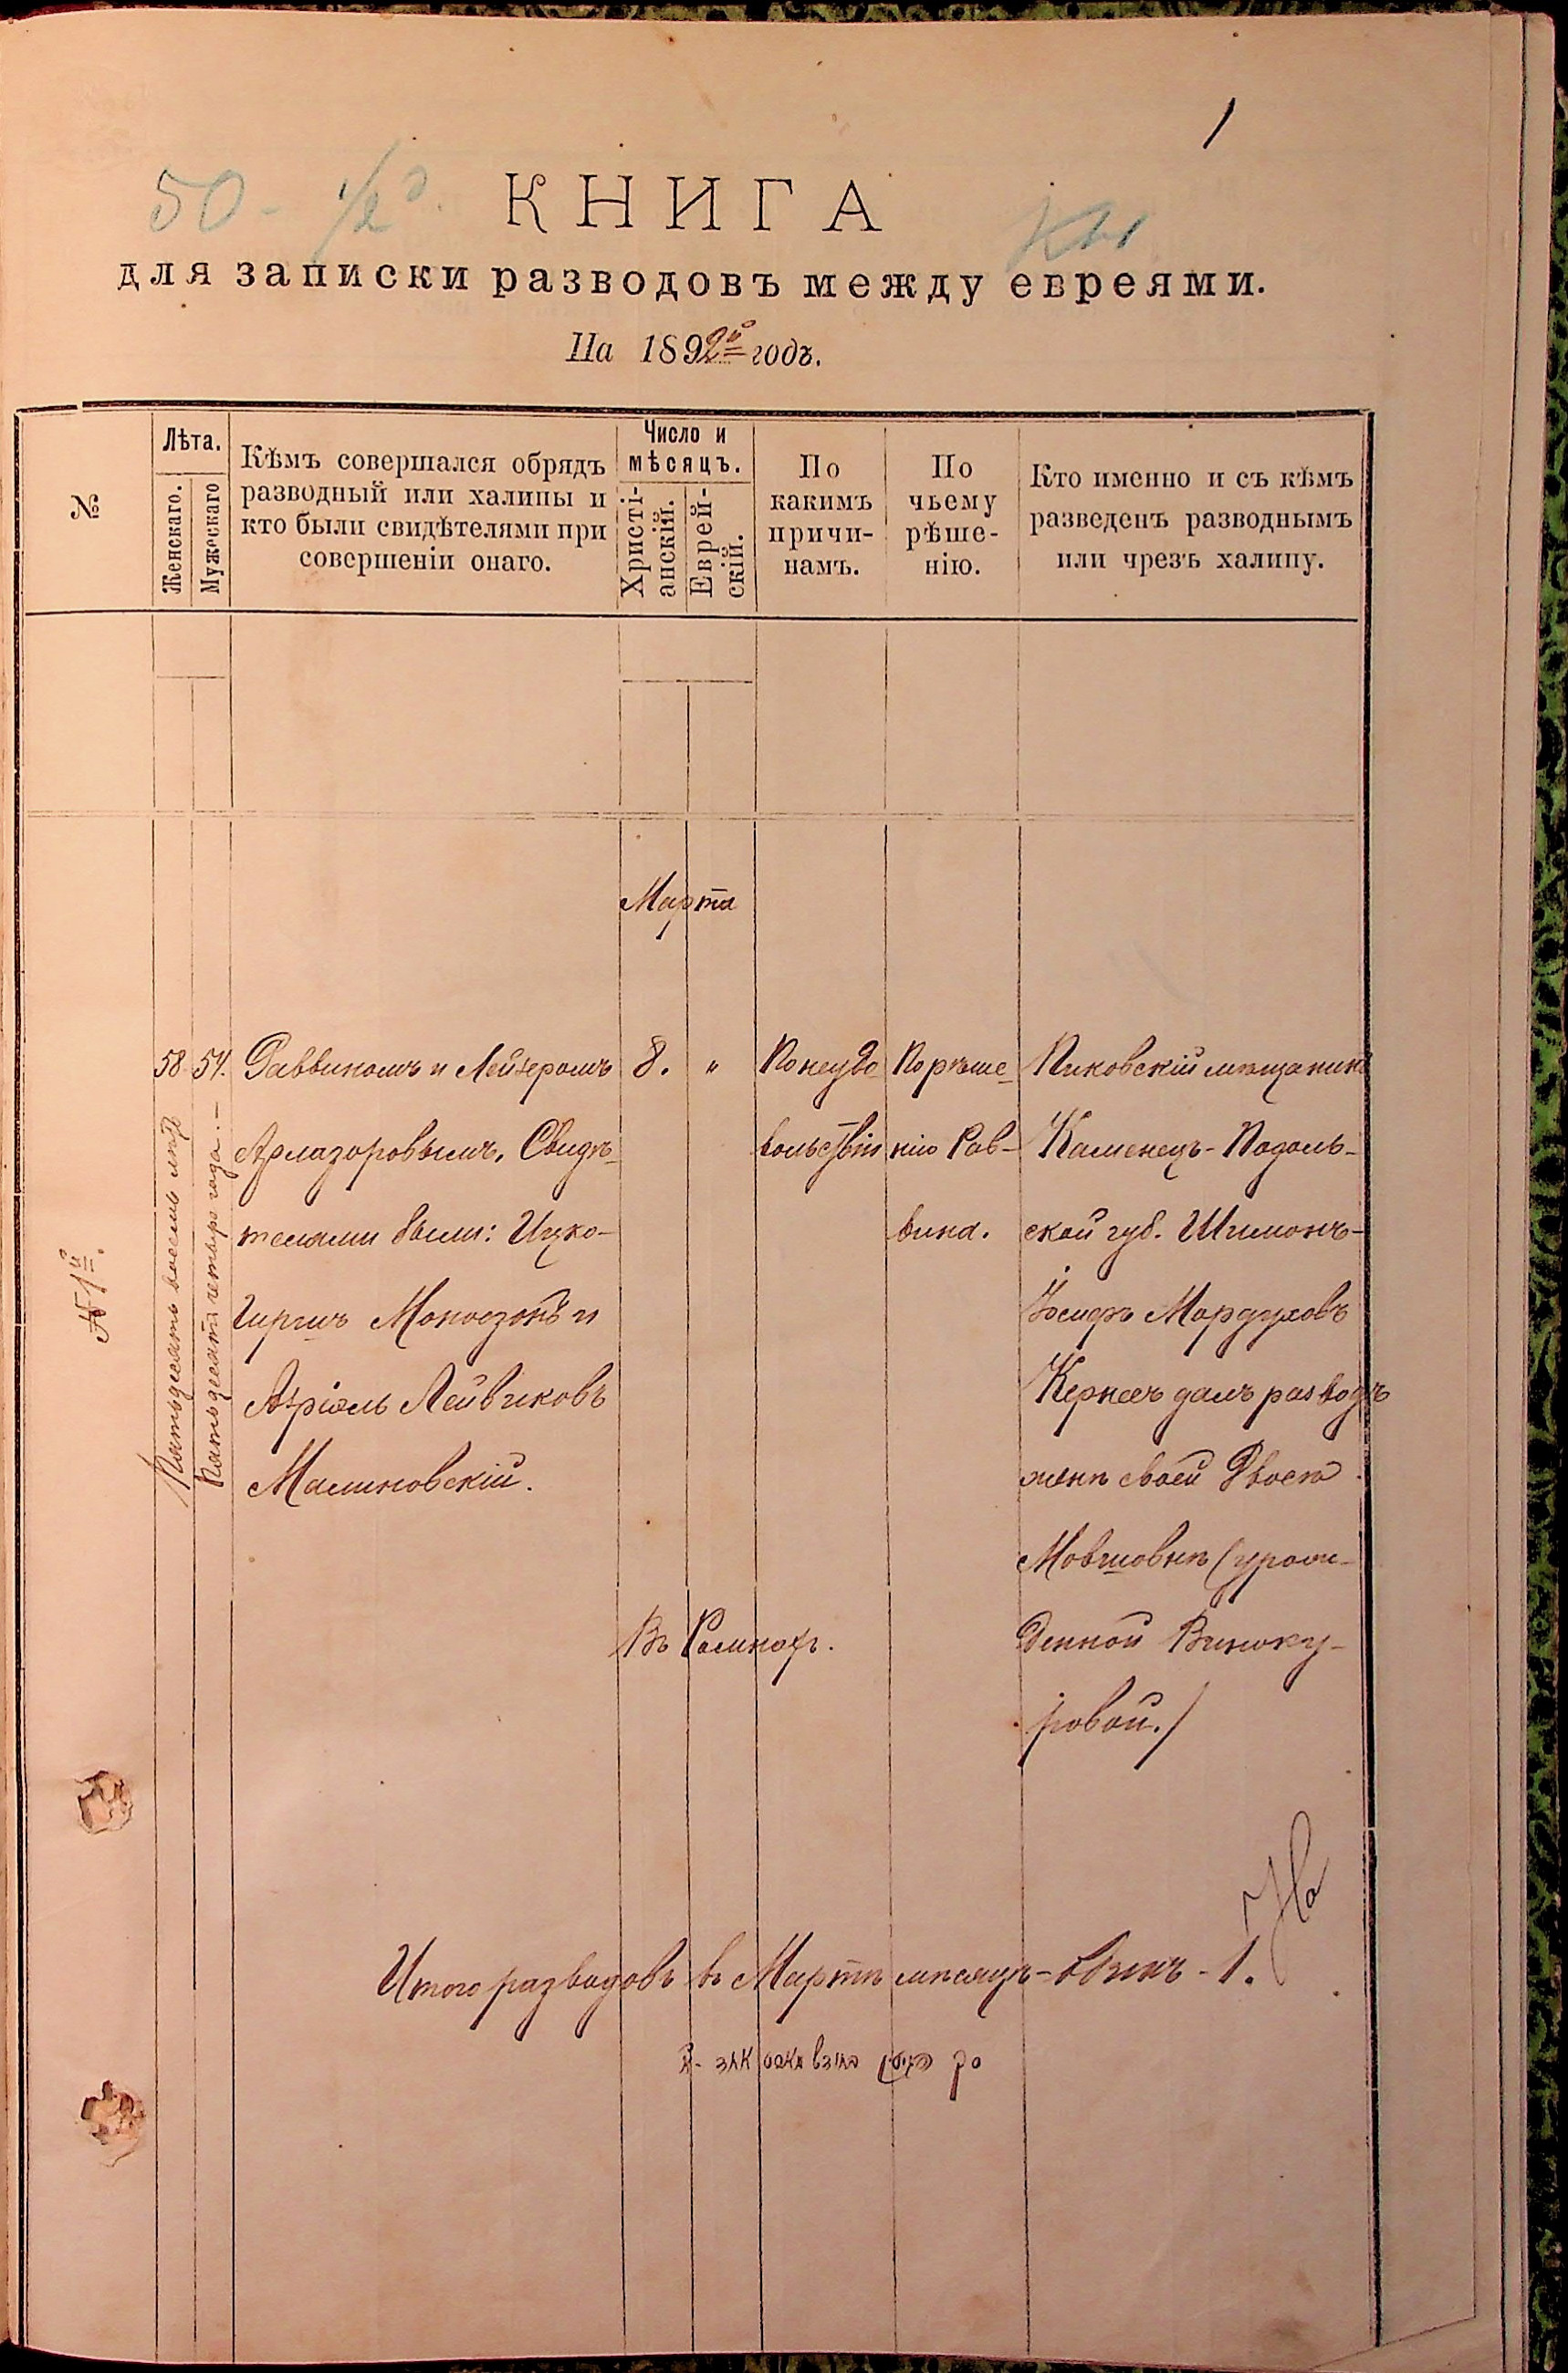 1
50 - 1/2
КНИГА
для записки разводовъ между евреями.
На 1892й годъ.
№
Лѣта.
Женскаго.
Мужескаго
Кѣмъ совершался обрядъ
разводный или халицы и
кто были свидѣтелями при
совершеніи онаго.
Число и
мѣсяцъ.
Христі-
анскій.
Еврей-
скій.
По
какимъ
причи-
намъ.
По
чьему
рѣше-
нію.
Кто именно и съ кѣмъ
разведенъ разводнымъ
или чрезъ халицу.
Марта
№ 1й.
58
Пятьдесятъ восемь лѣтъ
54.
Пятьдесятъ четыре года.-
Раввиномъ и Лейзеромъ
Арлазоровымъ. Свидѣ-
телями были: Ицко-
Гиршъ Моносзонъ и
Азріэль Лейвиковъ
Малиновскій.
8.
"
По неудо-
вольствію
По рѣше-
нію Рав-
вина.
Пиковскій мѣщанинъ
Каменецъ-Подоль-
ской губ. Шимонъ-
Іосифъ Мордуховъ
Кернесъ далъ разводъ
женѣ своей Двосѣ
Мовшовнѣ (урож-
денной Виноку-
ровой.)
Въ Ромнахъ.
Итого разводовъ въ Мартѣ мѣсяцѣ - одинъ - 1.